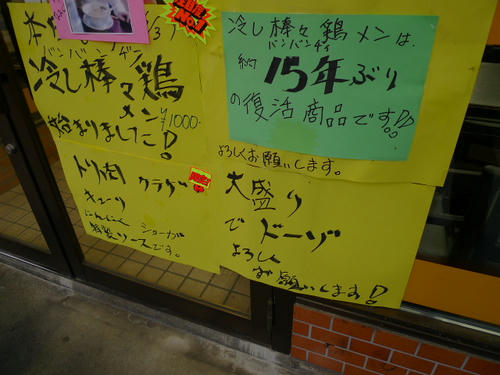 冷し棒々鶏
バンバンヂー
メン ¥1000-
始まりました!
トリ肉 クラゲ
キューリ
にんにく ショーガ
特製ソースです。
冷し棒々鶏メンは、
バンバンヂィ
約15年ぶり
の復活商品です!!
よろしくお願いします。
大盛り
でドーゾ
よろしく
お願いします!